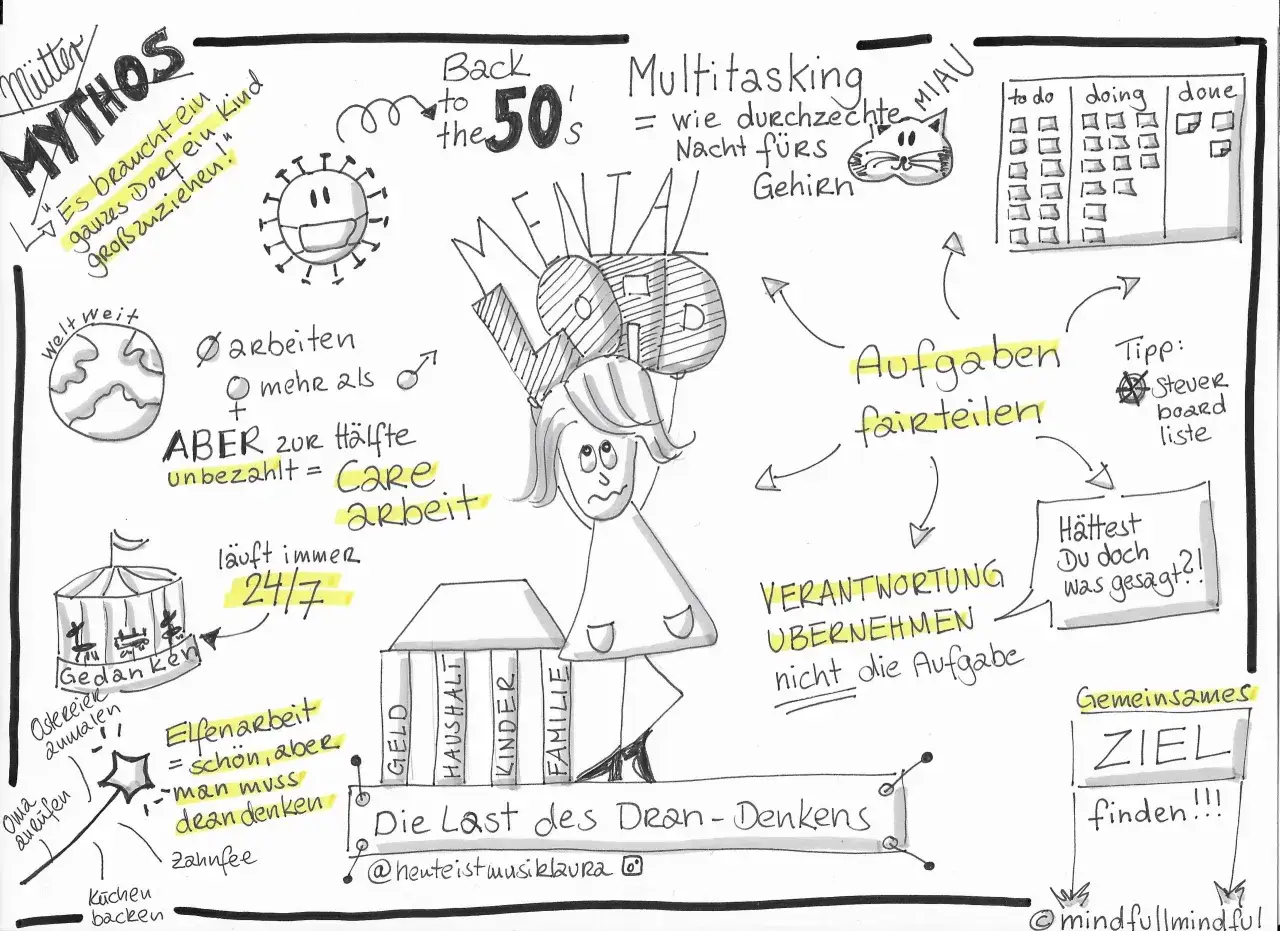 Mütter
MYTHOS
"Es braucht ein
ganzes Dorf ein Kind
großzuziehen!"
Back
to
the 50's
Multitasking
= wie durchzechte
Nacht fürs
Gehirn
MIAU
to do doing done
MENTAL
LOAD
weltweit
Ø arbeiten
♀ mehr als ♂
ABER zur Hälfte
unbezahlt = Care
arbeit
läuft immer
24/7
Gedanken
Aufgaben
fairteilen
Tipp:
Steuer
board
liste
Hättest
Du doch
was gesagt?!
VERANTWORTUNG
ÜBERNEHMEN
nicht die Aufgabe
GELD
HAUSHALT
KINDER
FAMILIE
Ostereier
anmalen
Oma
anrufen
Elfenarbeit
= schön, aber
man muss
dran denken
Zahnfee
Kuchen
backen
Die Last des Dran-Denkens
@heuteistmusiklaura
Gemeinsames
ZIEL
finden!!!
© mindfullmindful